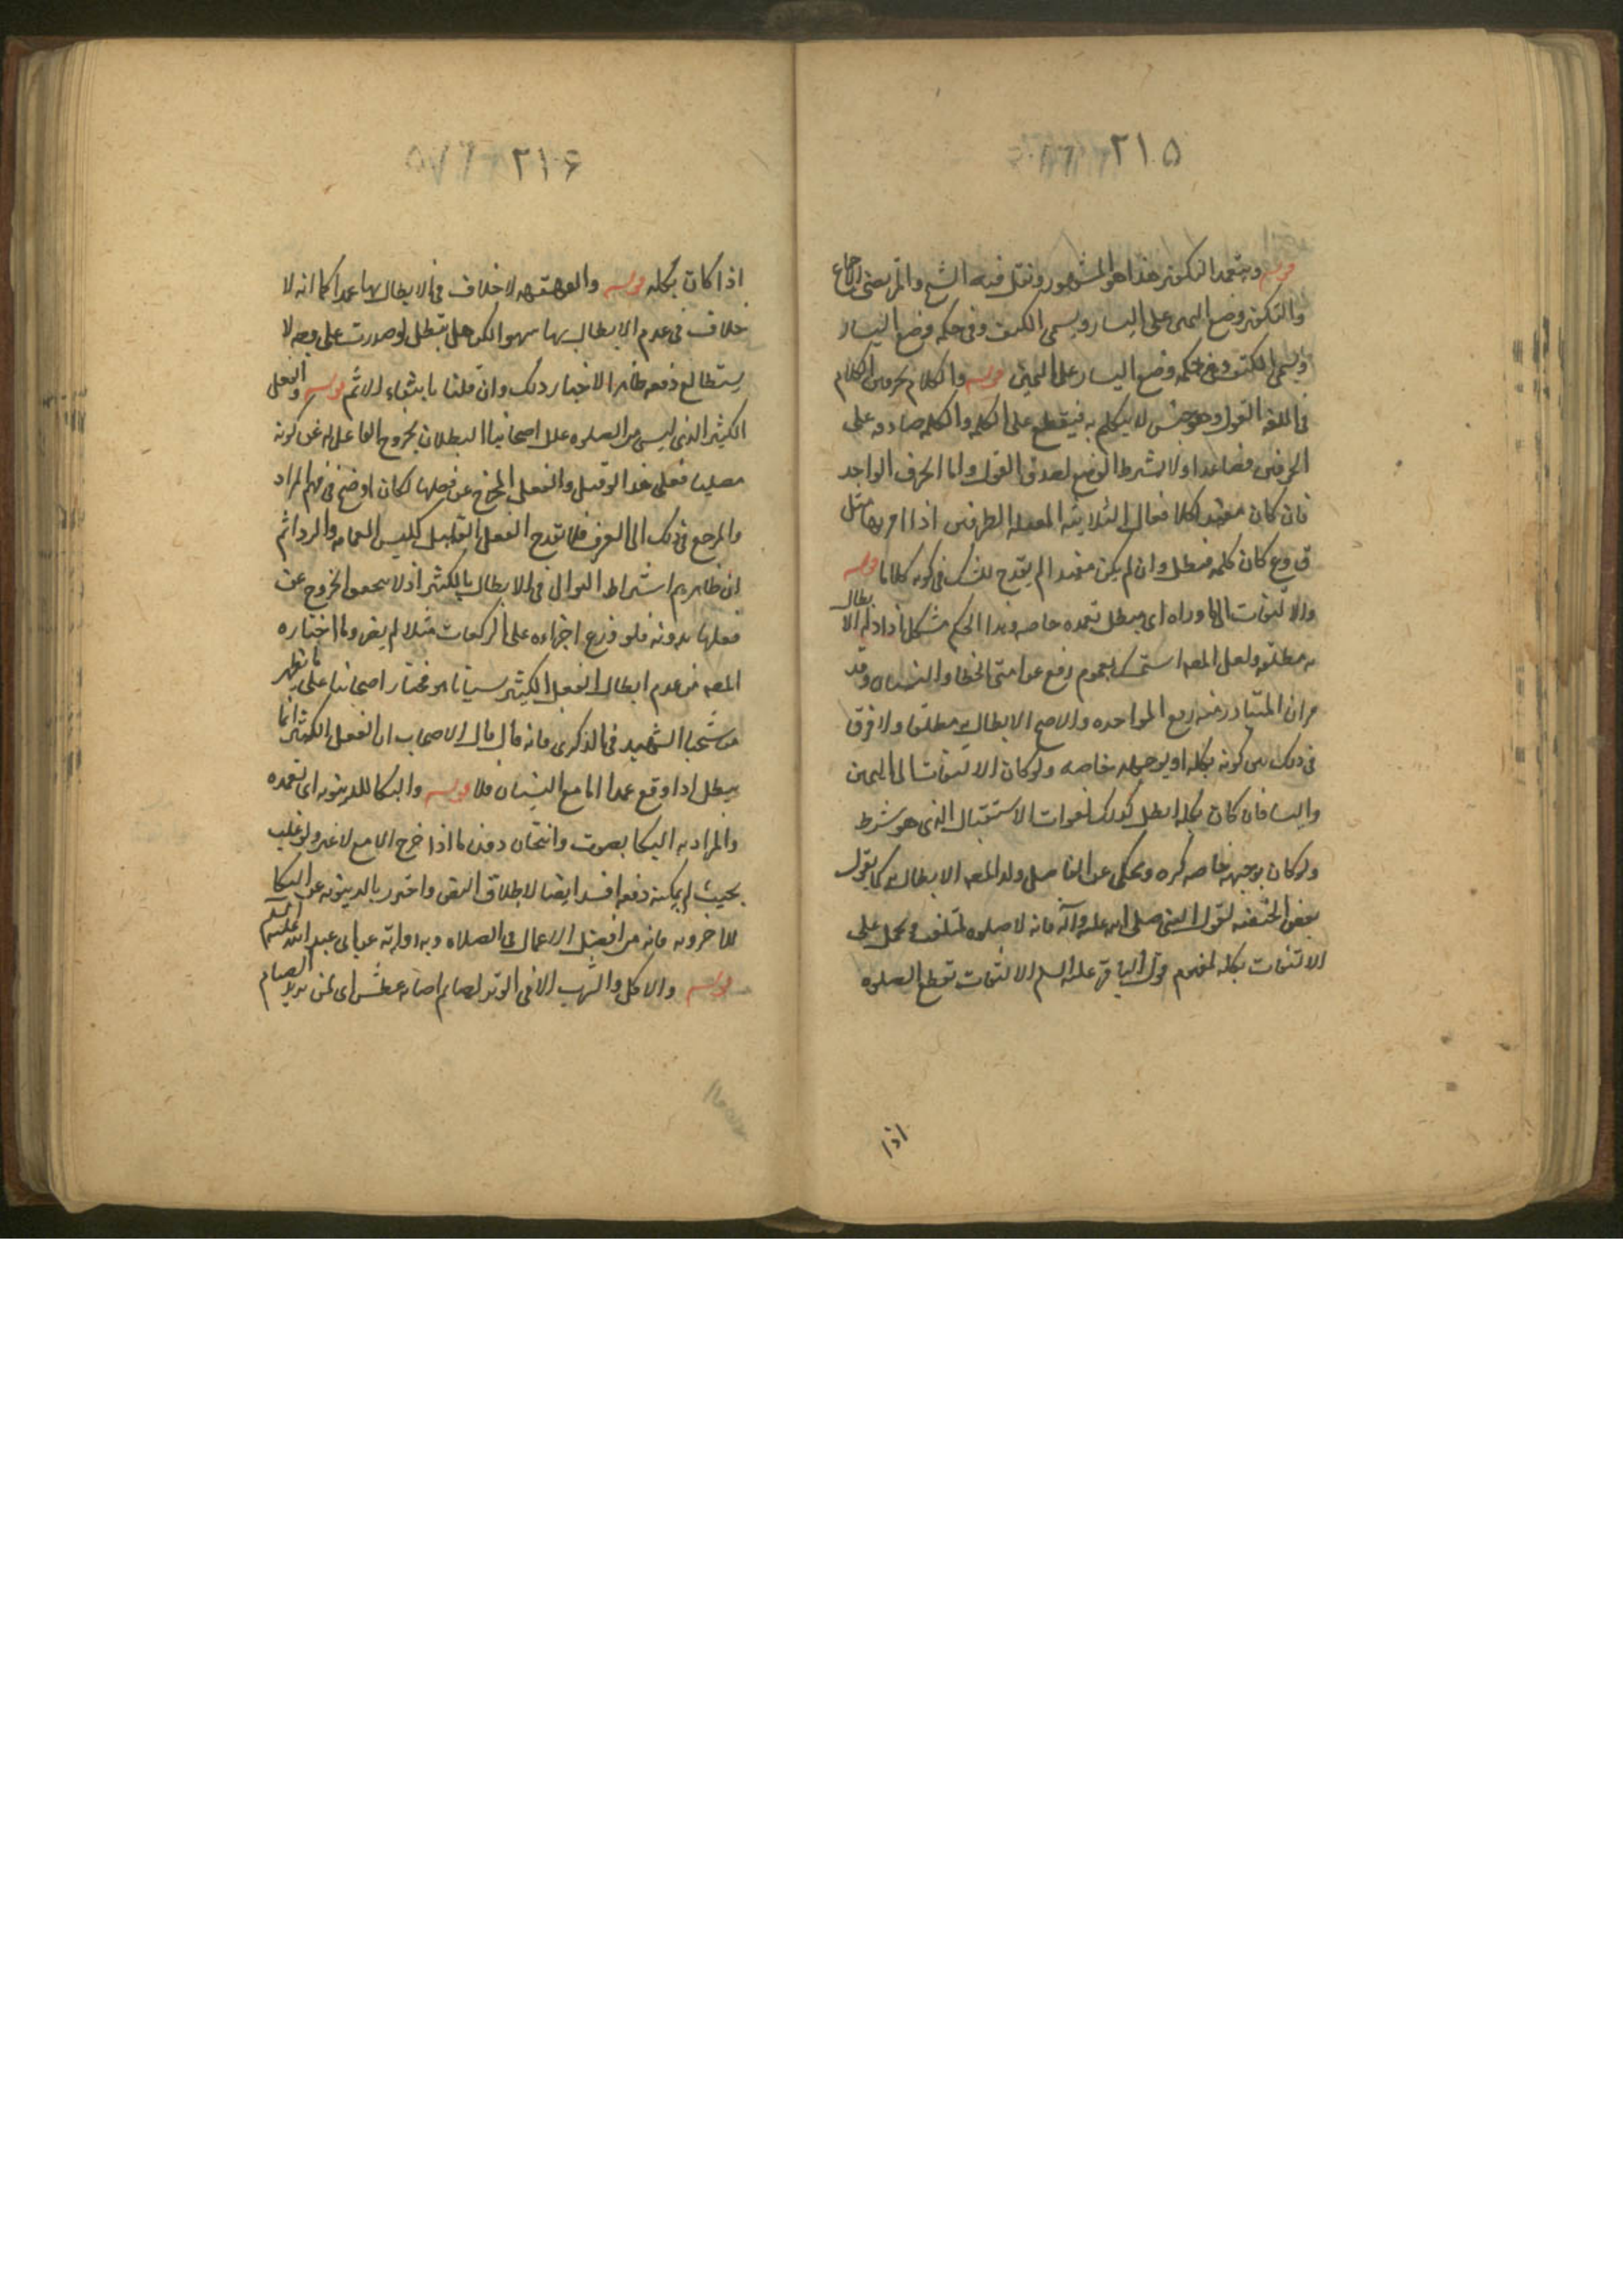 ٢١٥
قوله وبتعمد التكفير هذا هو المشهور ونقل فيه الشيخ والمرتضى الاجماع
والتكفير وضع اليمين على اليسار ويسمى الكتف وفى حكمه وضع اليسار
ويسمى الكتف وفى حكمه وضع اليسار على اليمين قوله والكلام بحرفين الكلام
فى اللغه القول وهو جنس لا يتكلم به فيقطع على الكلمه والكلمه صادقه على
الحرفين فصاعدا ولا يشترط الوضع لصدق القول واما الحرف الواحد
فان كان مفيدا كالافعال الثلاثيه المعتله الطرفين اذا امر بها مثل
ق و ع كان كلمه فتبطل وان لم يكن مفيدا لم يقدح للشك فى كونه كلاما قوله
والالتفات الى ماوراه اى يبطل بتعمده خاصه وهذا الحكم مشكل اذ ادله الابطال
به مطلقه ولعل المصه استمسك بعموم رفع عن امتى الخطا والنسيان وقد
مر ان المتبادر منه رفع المواخده والاصح الابطال به مطلقا ولا فرق
فى ذلك بين كونه بكله او بوجهه خاصه ولو كان الالتفات الى اليمين
واليسا فان كان بكله ابطل كذلك لفوات الاستقبال الذى هو شرط
ولو كان بوجهه خاصه كره وحكى عن الفاضل ولد المصه الابطال به كما يقول
بعض الحنفيه لقول النبى صلى الله عليه وآله فانه لا صلوه لملتفت ويحمل على
الالتفات بكله لمفهوم قول الباقر عليه السلم الالتفات تقطع الصلوه
اذا
٢١۶
اذا كان بكله قوله والقهقهه لا خلاف فى الابطال بها عمدا كما انه لا
خلاف فى عدم الابطال بها سهوا لكن هل تبطل لو صدرت على وجه لا
يستطاع دفعه ظاهر الاخبار ذلك وان قلنا بانتفاء الاثم قوله والفعل
الكثير الذى ليس من الصلوه علل اصحابنا البطلان بخروج الفاعل له عن كونه
مصليا فعلى هذا لو قيل والفعل المخرج عن فعلها لكان اوضح فى فهم المراد
والمرجع فى ذلك الى العرف فلا تقدح الفعل القليل كلبس العمامه والرداثم
ان ظاهرهم اشتراط التوالى فى الابطال بالكثير اذ لا يتحقق الخروج عن
فعلها بدونه فلو وزع اجزاءه على الركعات مثلا لم يضر وما اختاره
المصه من عدم ابطال الفعل الكثير سيانا هو مختار اصحابنا على ما يظهر
من شيخنا الشهيد فى الذكرى فانه قال قال الاصحاب ان الفعل الكثير انما
يبطل اذا وقع عمدا اما مع النسيان فلا قوله والبكا للدنيويه اى تعمده
والمراد به البكا بصوت وانتحاب دفن ما اذا خرج الدمع لا غير ولو غلب
بحيث لم يمكنه دفعه افسد ايضا لاطلاق النص واحترز بالدنيويه عن البكا
للاخرويه فانه من افضل الاعمال فى الصلاه وبه روايه عن ابى عبد الله عليه السلم
قوله والاكل والشرب الا فى الوتر لصايم اصابه عطش اى لمن يريد الصيام